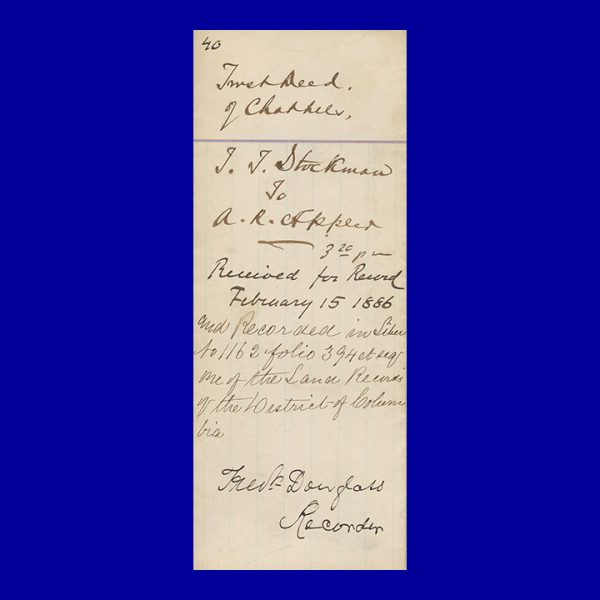 40
Trust Deed.
of Chattels,
T. T. Stockman
To
A. R. Appler
3 20 pm
Received for Record
February 15 1886
and Recorded in Liber
No 1162 folio 394 et seq
one of the Land Records
of the District of Colum
bia
Fredk Douglass
Recorder